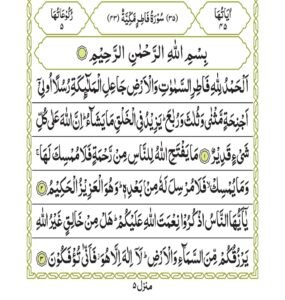 اٰيَاتُهَا ٤٥
(٣٥) سُوْرَةُ فَاطِرٍ مَّكِّيَّةٌ (٤٣)
رُكُوْعَاتُهَا ٥
بِسْمِ اللّٰهِ الرَّحْمٰنِ الرَّحِيْمِ
اَلْحَمْدُ لِلّٰهِ فَاطِرِ السَّمٰوٰتِ وَالْاَرْضِ جَاعِلِ الْمَلٰٓئِكَةِ رُسُلًا اُولِيْٓ
اَجْنِحَةٍ مَّثْنٰى وَثُلٰثَ وَرُبٰعَ ؕ يَزِيْدُ فِي الْخَلْقِ مَا يَشَآءُ ؕ اِنَّ اللّٰهَ عَلٰى كُلِّ
شَيْءٍ قَدِيْرٌ ۝١ مَا يَفْتَحِ اللّٰهُ لِلنَّاسِ مِنْ رَّحْمَةٍ فَلَا مُمْسِكَ لَهَا ۚ
وَمَا يُمْسِكْ ۙ فَلَا مُرْسِلَ لَهٗ مِنْۢ بَعْدِهٖ ؕ وَهُوَ الْعَزِيْزُ الْحَكِيْمُ ۝٢
يٰٓاَيُّهَا النَّاسُ اذْكُرُوْا نِعْمَتَ اللّٰهِ عَلَيْكُمْ ؕ هَلْ مِنْ خَالِقٍ غَيْرُ اللّٰهِ
يَرْزُقُكُمْ مِّنَ السَّمَآءِ وَالْاَرْضِ ؕ لَآ اِلٰهَ اِلَّا هُوَ ۖ فَاَنّٰى تُؤْفَكُوْنَ ۝٣
منزل ٥